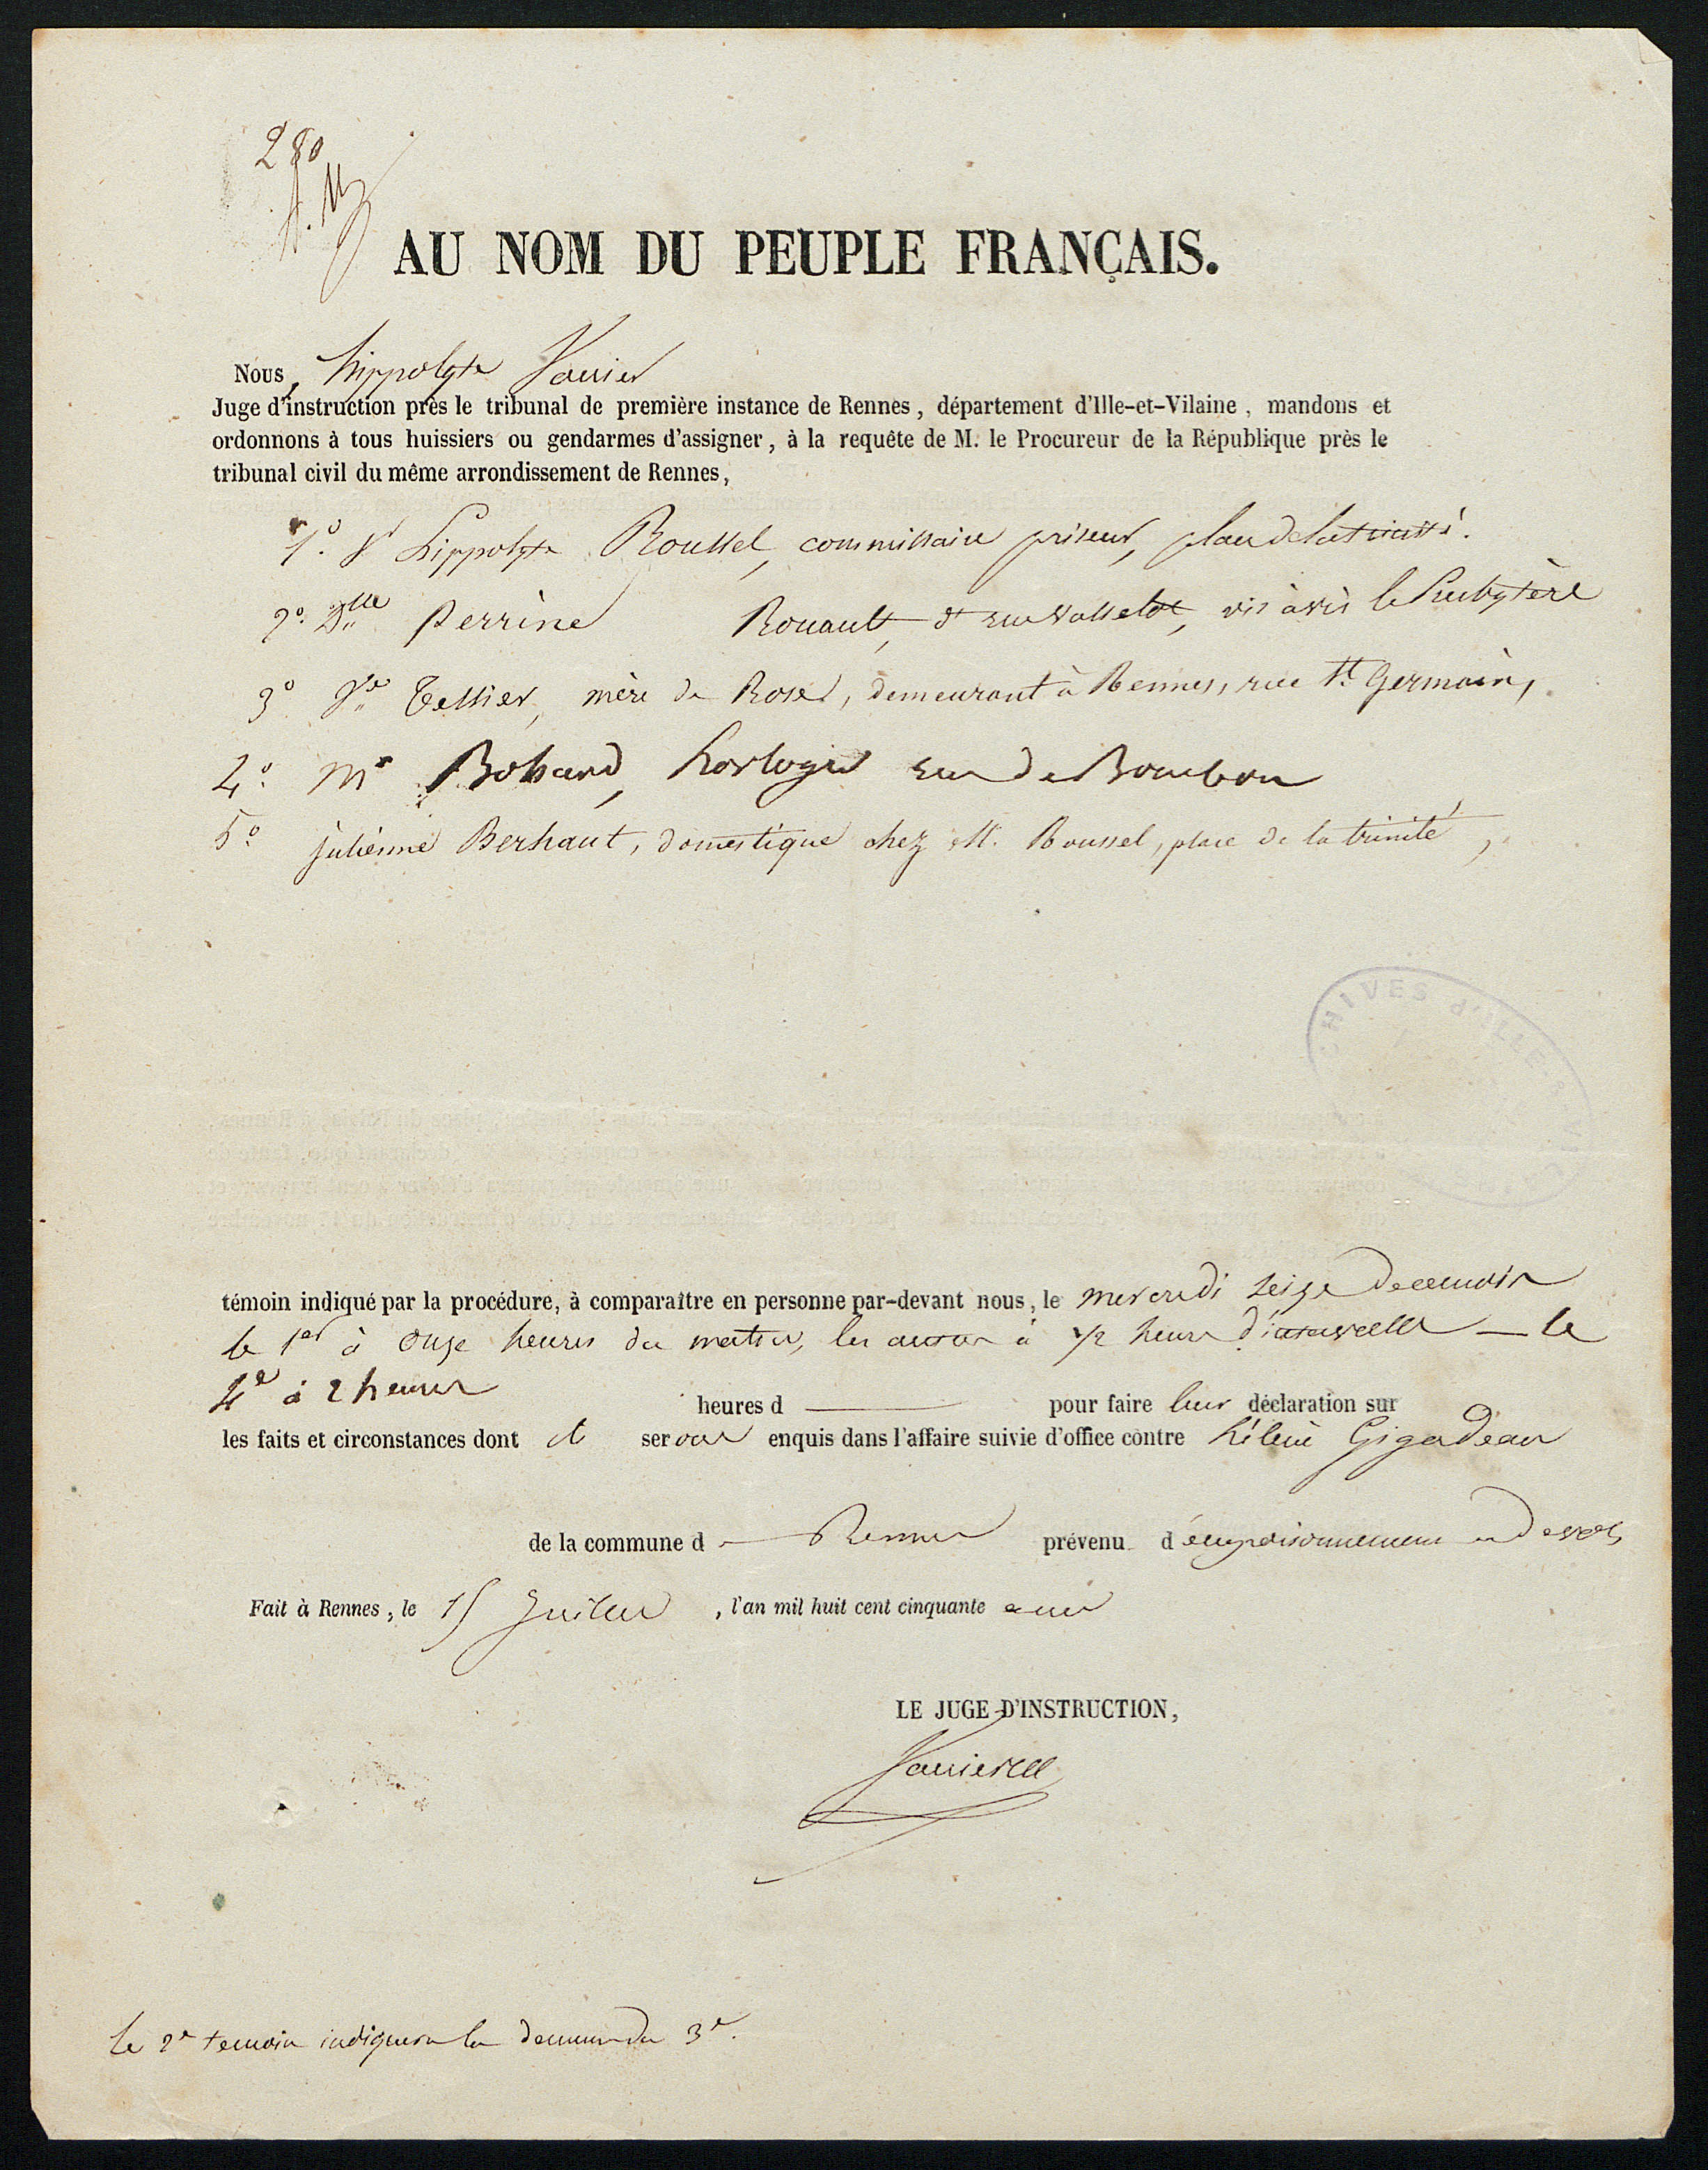 280
AU NOM DU PEUPLE FRANÇAIS.
Nous, hippolyte Vannier
Juge d'instruction près le tribunal de première instance de Rennes, département d'Ille-et-Vilaine, mandons et
ordonnons à tous huissiers ou gendarmes d'assigner, à la requête de M. le Procureur de la République près le
tribunal civil du même arrondissement de Rennes,
1° Sr hippolyte Roussel, commissaire priseur, place de la trinité.
2° Dlle Perrine Rouault, rue Vasselot, vis à vis le Presbytère
3° Ve Tessier, mère de Rose, demeurant à Rennes, rue St Germain,
4° Mr Bobard, horloger rue de Bourbon
5° julienne Berhaut, domestique chez M. Roussel, place de la trinité,
ARCHIVES d'ILLE-&-VILAINE
témoin indiqué par la procédure, à comparaître en personne par-devant nous, le mercredi seize
le 1er à onze heures du matin, les autres à 1/2 heure — le
4e à 2 heures heures d — pour faire leur déclaration sur
les faits et circonstances dont ils seront enquis dans l'affaire suivie d'office contre hélène Gigadeau
de la commune d — Rennes prévenu d'empoisonnement et de vols
Fait à Rennes, le 15 Juillet, l'an mil huit cent cinquante et un
LE JUGE D'INSTRUCTION,
Vannier
le 2e temoin indiquera la demeure du 3e.